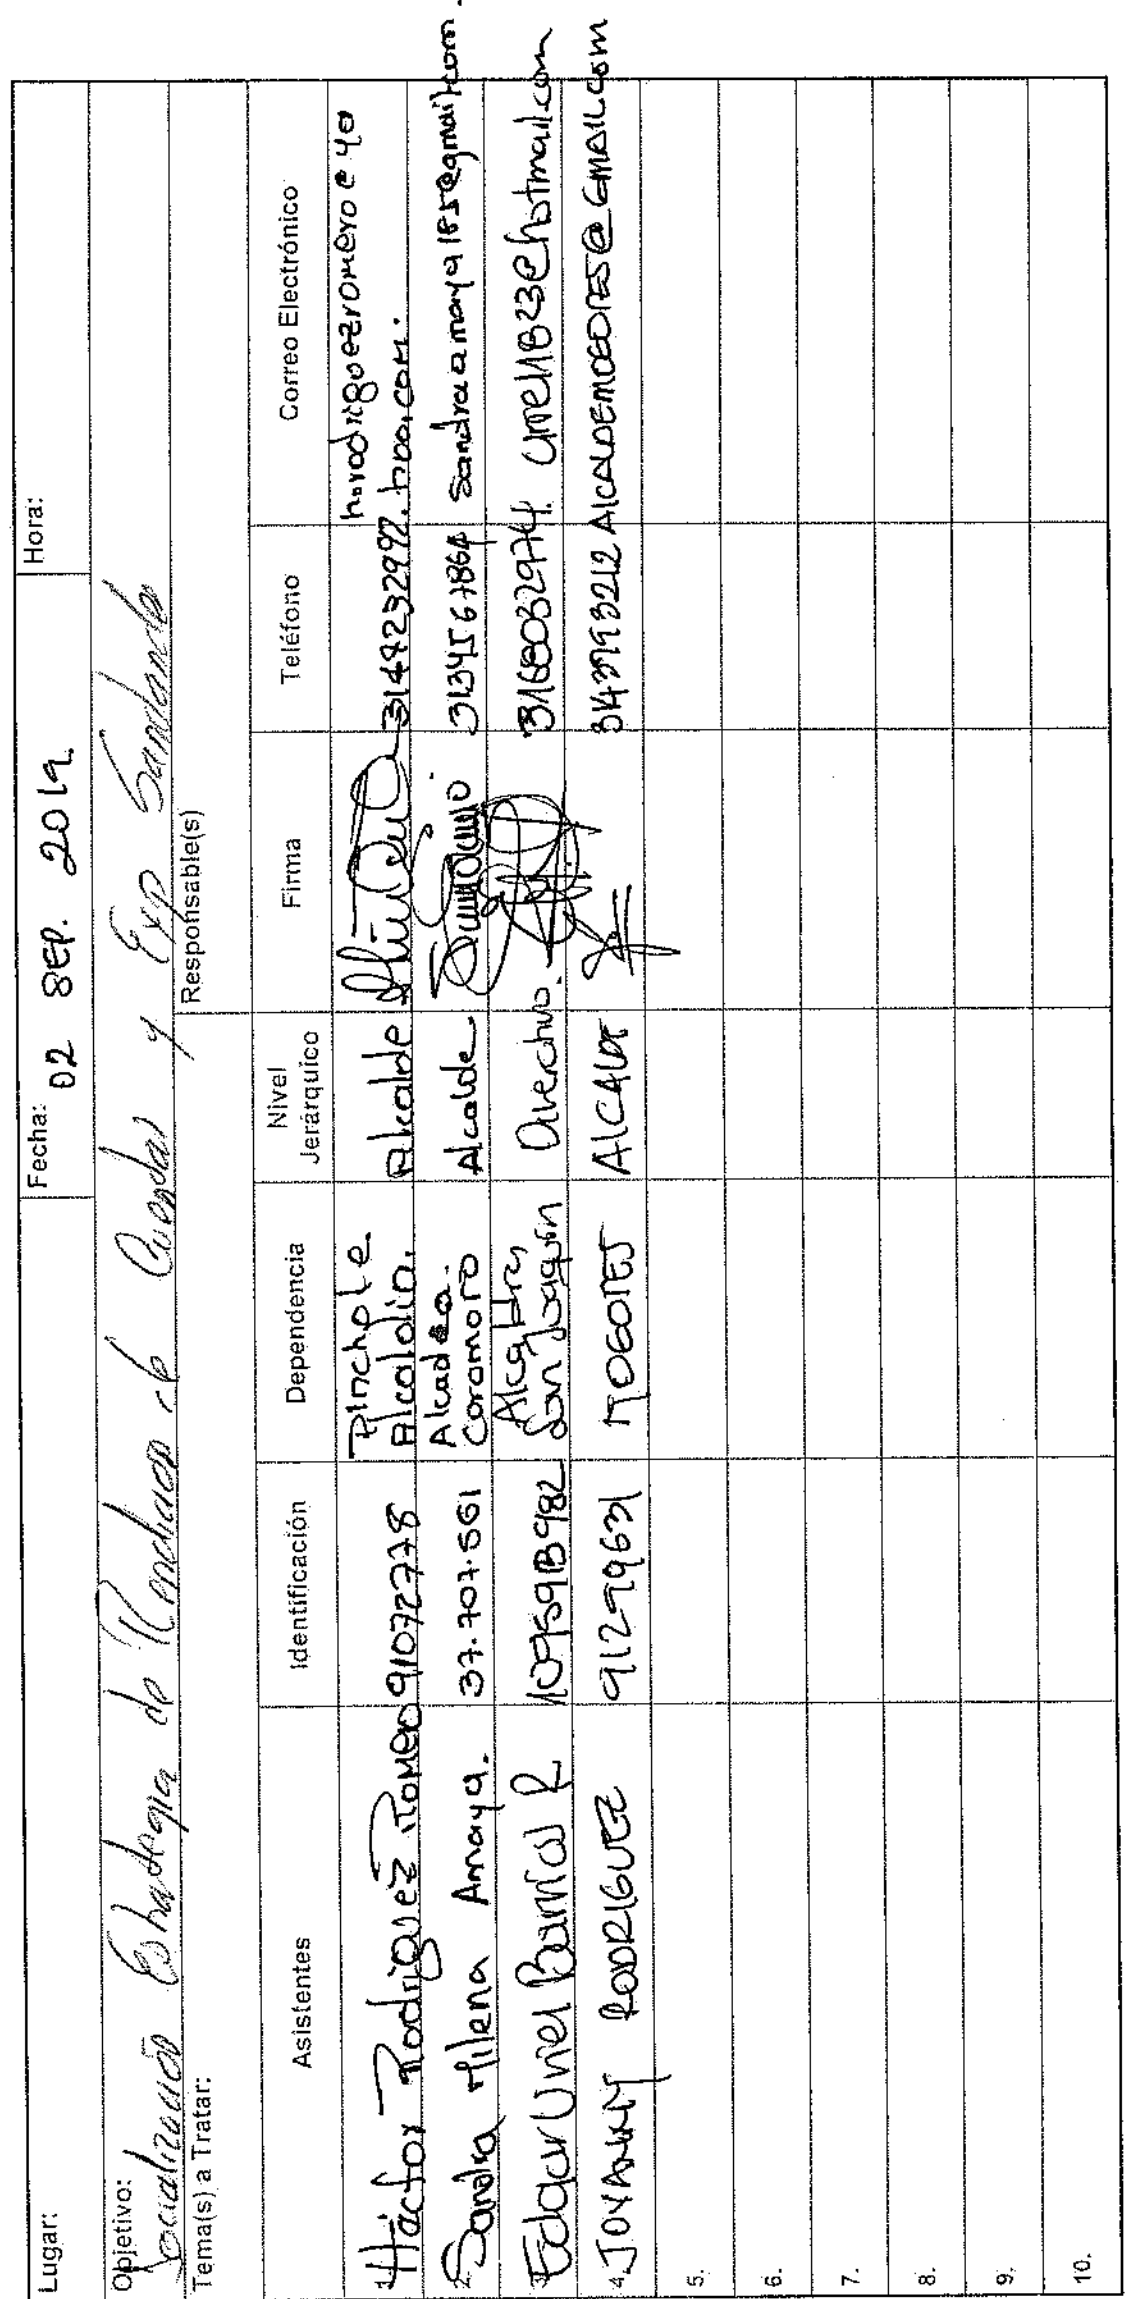 Lugar: Fecha: 02 SEP. 2019. Hora:
Objetivo:
Socialización Estrategia de Rendicion de Cuentas y Exp Santander
Tema(s) a Tratar: Responsable(s)
Asistentes Identificación Dependencia Nivel Jerárquico Firma Teléfono Correo Electrónico
1. Héctor Rodriguez Romero 91072778 Pinchote Alcaldia. Alcalde 3142232992. h.rodriguezromero@yahoo.com.
2. Sandra Milena Amaya. 37.707.561 Alcadea. Coromoro Alcalde 3134567864 sandraamaya185@gmail.com.
3. Edgar Uriel Barrios R 1095913982 San Joaquin 3168032974. uriel1823@hotmail.com
4. JOVANNY RODRIGUEZ 91299631 MOGOTES ALCALDE 3143993212 ALCALDEMOGOTES@GMAIL.com
5.
6.
7.
8.
9.
10.